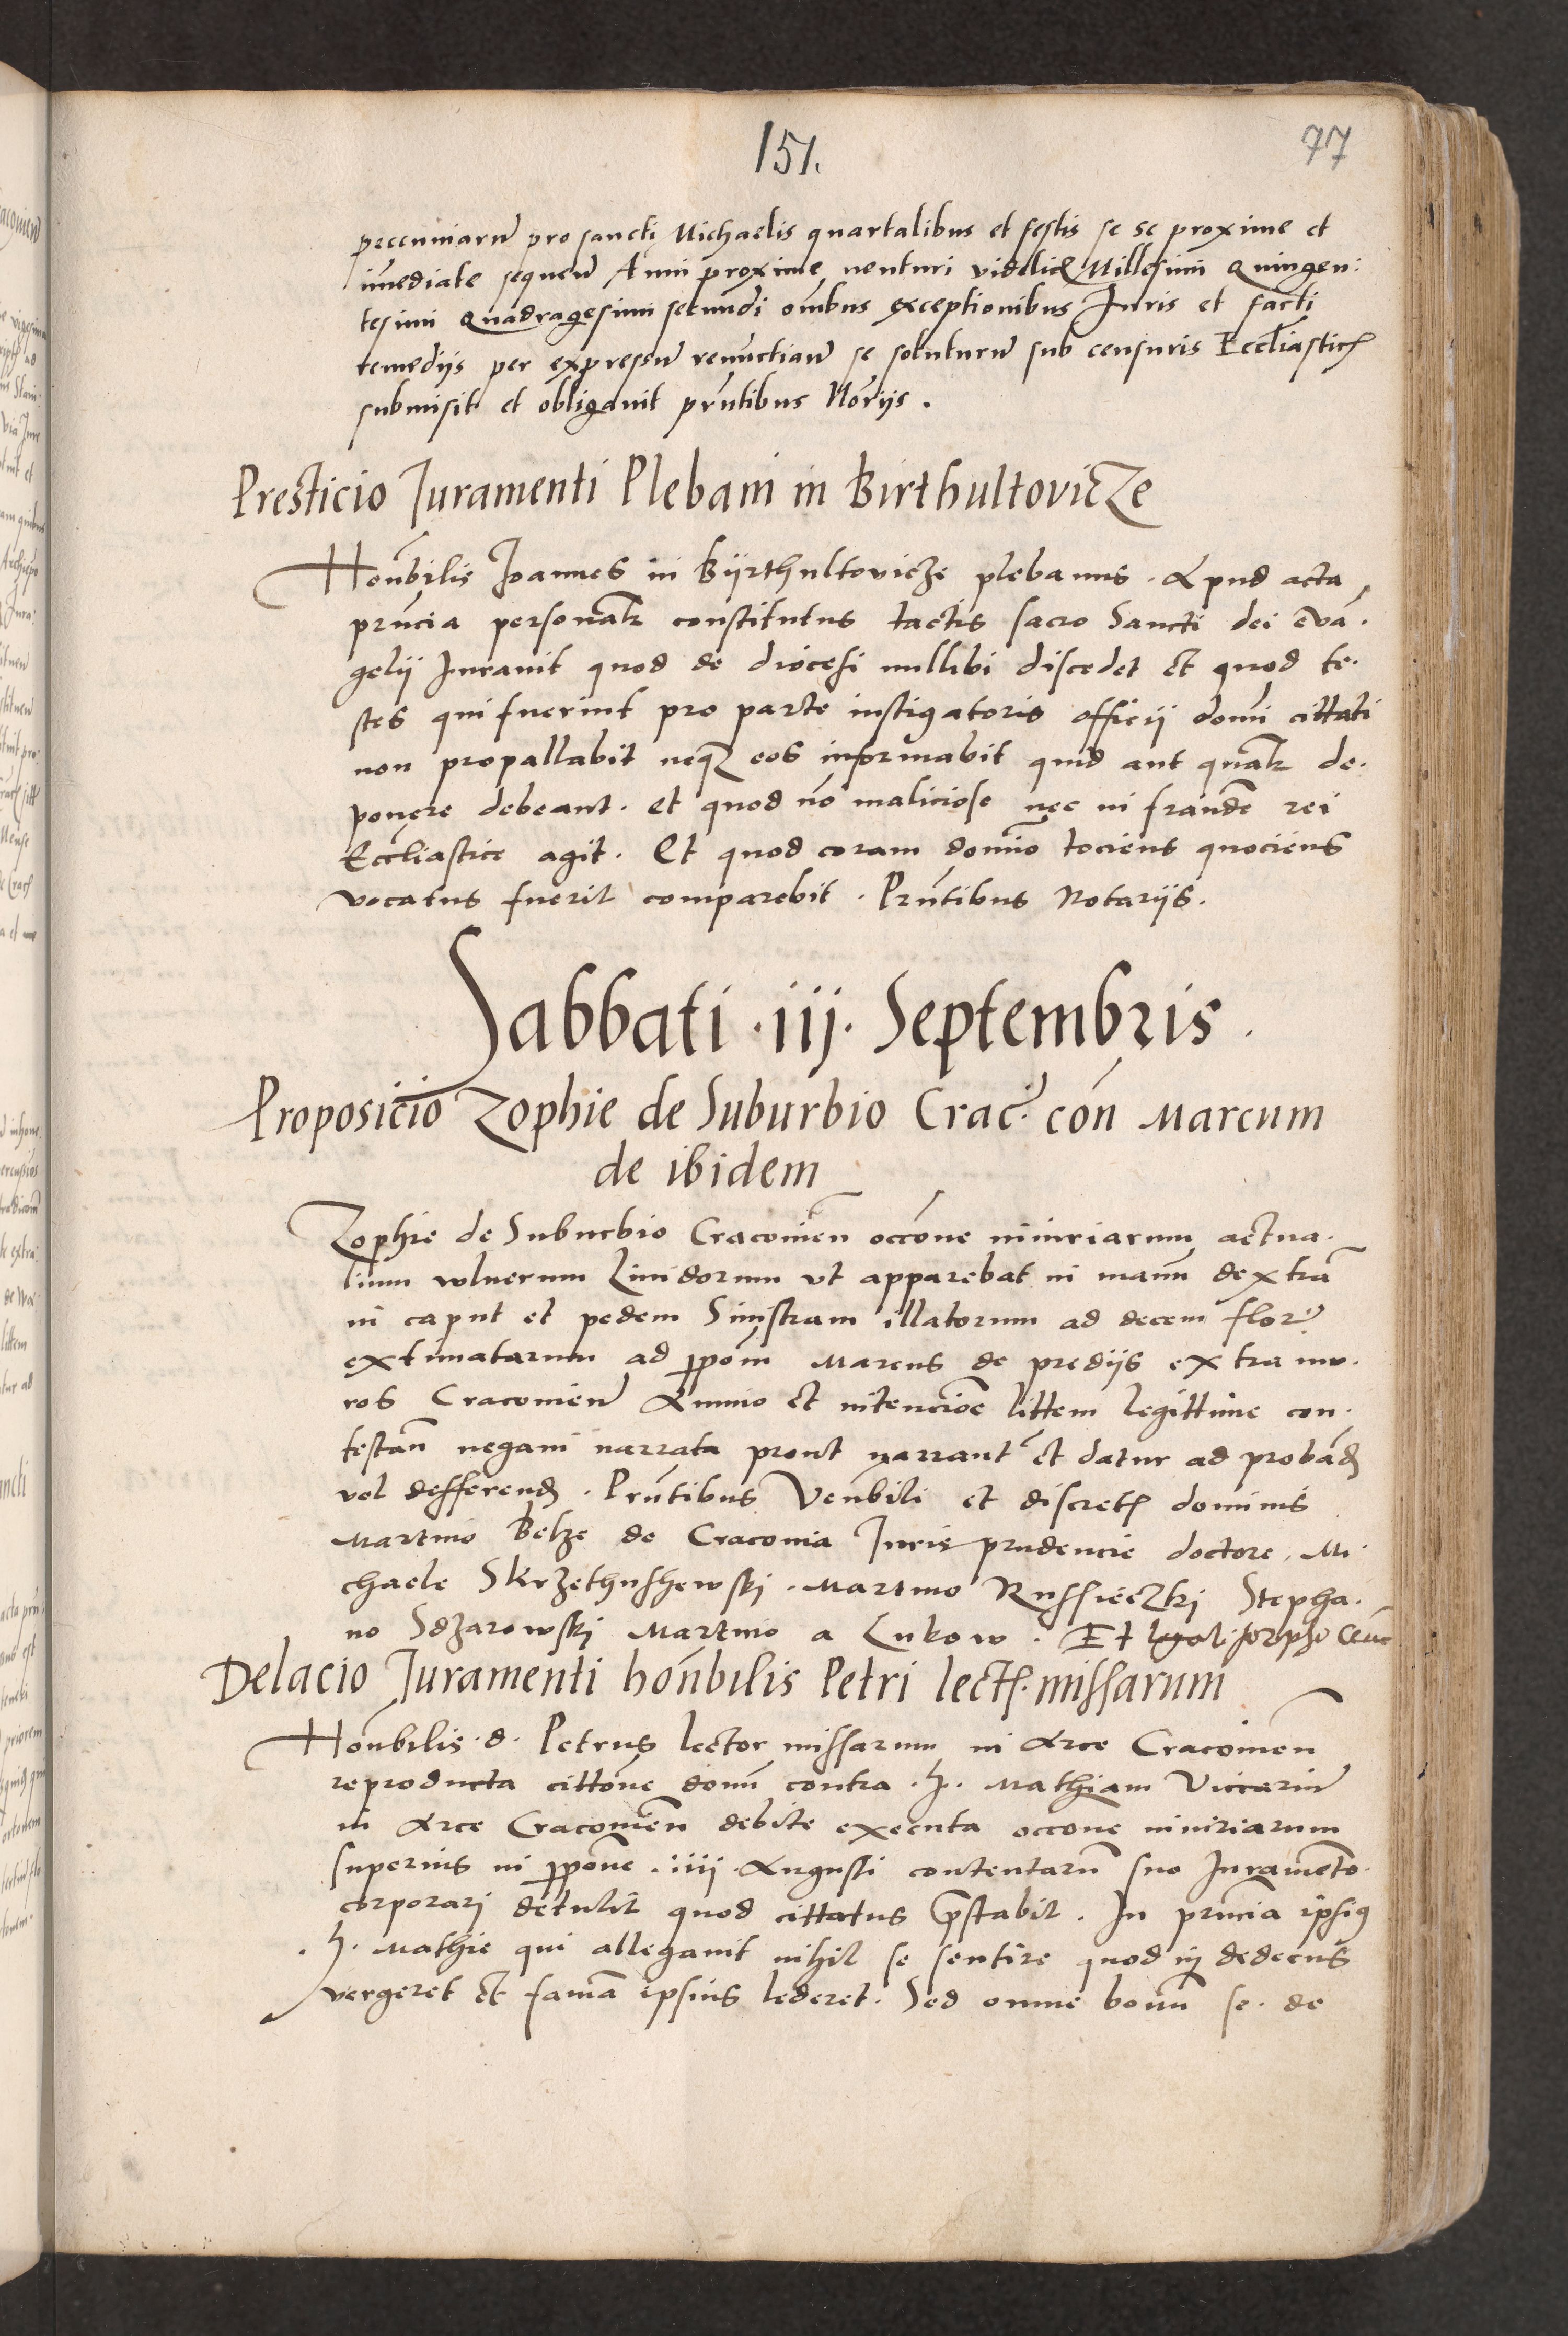 151.
77
pecuniarũ pro sancti Michaelis quartalibus et festis se se proxime et
im̃ediate sequeñ Anni proxime venturi videlicꝫ Millesimi Quingen:
tesimi Quadragesimi secundi om̃ibus exceptionibus Juris et facti
remedijs per expressũ renũctiañ se soluturũ sub censuris Eccl̃iasticꝫ
submisit et obligauit pr̃ntibus Nor̃ijs.
Presticio Juramenti Plebani in BirthultoviczE
Hon̄bilis Joannes in Byrthultovicze plebanus. Apud acta
pr̃ncia personalr̃ constitutus tactis sacro Sancti dei eva͂.
gelij Jurauit quod de diocesi nullibi discedet et quod te.
stes qui fuerint pro parte instigatoris officij dom̃i cittati
non propallabit neqꝫ eos informabit quid aut qualr̃ de.
ponere debeant. et quod nõ maliciose nec in fraudẽ rei
Eccl̃iastice agit. Et quod coram domĩo tociens quociens
vocatus fuerit comparebit. Pr̃ntibus Notarijs.
Sabbati .iij. Septembris.
Proposicio Zophie de Suburbio Crac̃. con̄ Marcum
de ibidem
Zophie de Suburbio Cracouieñ occõne iniuriarum actua.
lium vulnerum Liuidorum vt apparebat in manũ dextrã
in caput et pedem Sinistram illatorum ad decem flor̃.
extimatarum ad ꝓpom̃ Marcus de predijs extra mu.
ros Cracouieñ Animo et intencioẽ littem legittime con.
testañ negaui narrata prout narrant̃ et datur ad probãdꝫ
vel defferendꝫ. Pr̃ntibus Ven̄bili et discretꝫ dominis
Martino Belze de Cracouia Juris prudencie doctore, Mi
chaele Skrzethushewski. Martino Russieczki Stepha.
no Sdzarowski Martino a Lukow. Et
Delacio Juramenti hon̄bilis Petri lectꝫ. missarum
Hon̄bilis .d. Petrus lector missarum in Arce Cracouieñ
reproducta cittõne domĩ contra .h. Mathiam Viccariũ
in Arce Cracouieñ debite executa occone iniuriarum
superius in ꝓpõne .iiij. Augusti contentarũ suo Juramẽto.
corporari detulit quod cittatus p̃stabit. In pr̃ncia ipsiꝰ
.h. Mathie qui allegauit nihil se sentire quod in dedecus
vergeret et famã ipsius lederet. Sed omne bonũ se. de